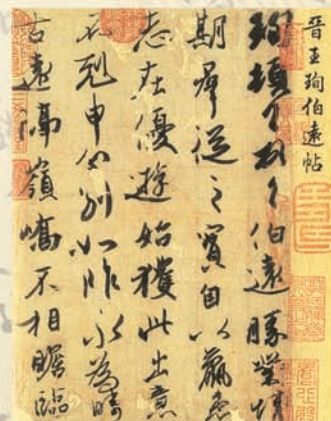 晋王珣伯遠帖
珣頓首頓首伯遠勝業情
期群從之寶自以羸患
志在優遊始獲此出意
不剋申分別如昨永為疇
古遠隔嶺嶠不相瞻臨